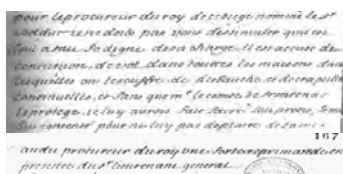 pour le procureur du roy de ce siege nommé le Sr
je ne dois pas vous dissimuler qu'il est
indigne de sa charge. il est accusé de
concussion, de vol dans toutes les maisons dans
lesquelles on le souffre, de debauche et de crapule
continuelles, et sans que mr le comte de
le protege, je luy aurois fait faire son proces, je me
suis contenté pour ne luy pas deplaire de faire
167
au du procureur du roy une forte reprimande en
presence du sr lieutenant general